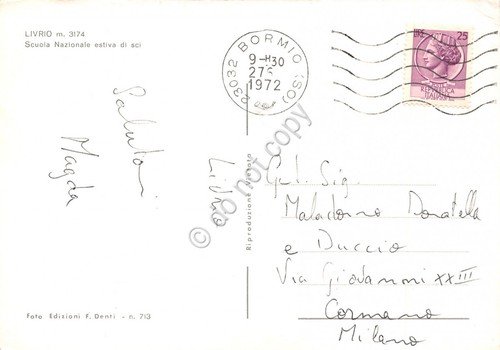 LIVRIO m. 3174
Scuola Nazionale estiva di sci
23032 BORMIO (SO)
9-H30
27 6
1972
LIRE 25
POSTE
REPUBBLICA
ITALIANA
Saluti
Magda
Livrio
Gent. Sig.
Donatella
e Duccio
Via Giovanni XXIII
Cormano
Milano
Riproduzione vietata
Foto Edizioni F. Denti - n. 713
do not copy